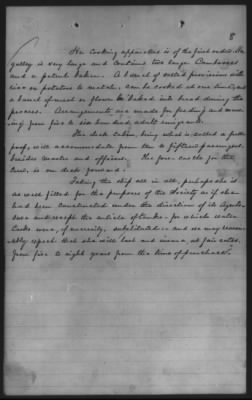 8
Her cooking apparatus is of the first order. The
galley is very large and contains two large Cambooses
and a patent baker. A barrel of salted provisions with
rice or potatoes to match, can be cooked at one time, and
a barrel of meal or flour be baked into bread during the
process. Arrangements are made for feeding and
from five to six hundred adult emigrants.
The deck cabin, being what is called a poop
, will accommodate from ten to fifteen passengers,
besides master and officers. The fore castle for the
crew, is on deck forward.
Taking the ship all in all, perhaps she is
as well fitted for the purposes of the Society as if she
had been constructed under the direction of its Agents,
save and except the article of tanks, for which water
casks were, of necessity, substituted and we may reason-
ably expect that she will last and insure, at fair rates,
from five to eight years from the time of purchase."